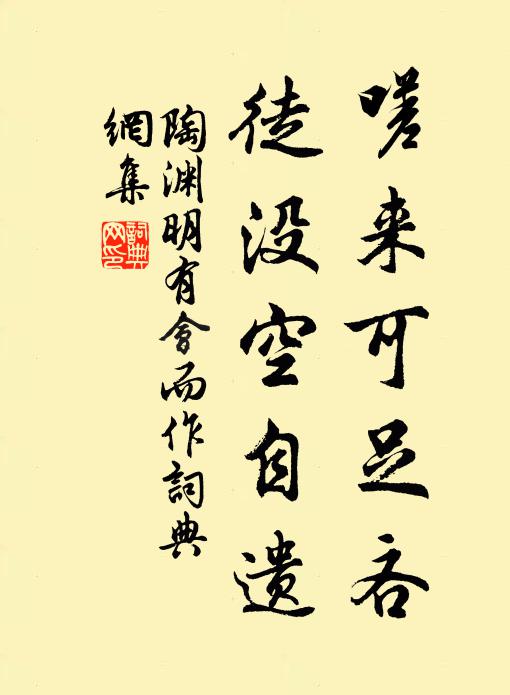 嗟来可足吝
徒没空自遗
陶渊明有會而作詞典
網集
詞典
网印